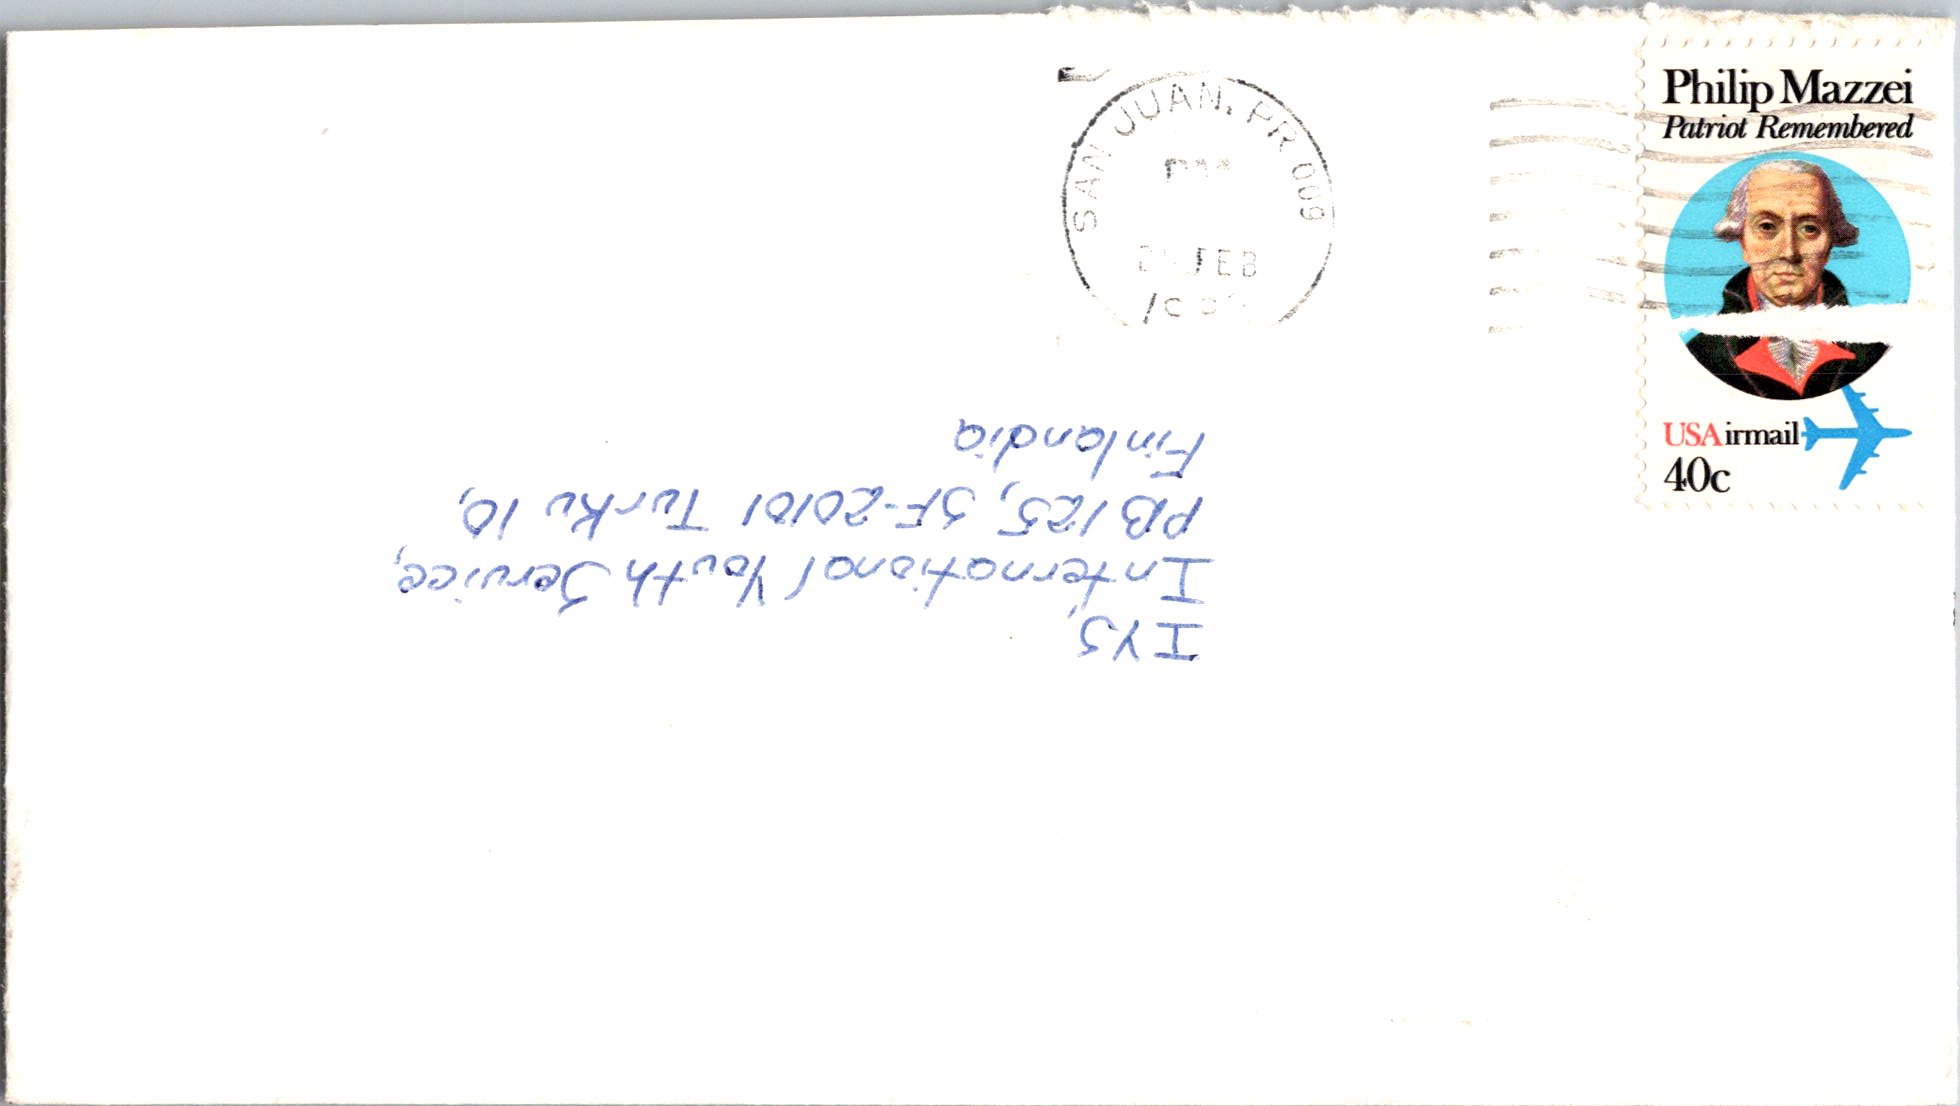 SAN JUAN, PR 009
PM
FEB
Philip Mazzei
Patriot Remembered
USAirmail
40c
IYS,
International Youth Service,
PB 125, SF-20101 Turku 10,
Finlandia